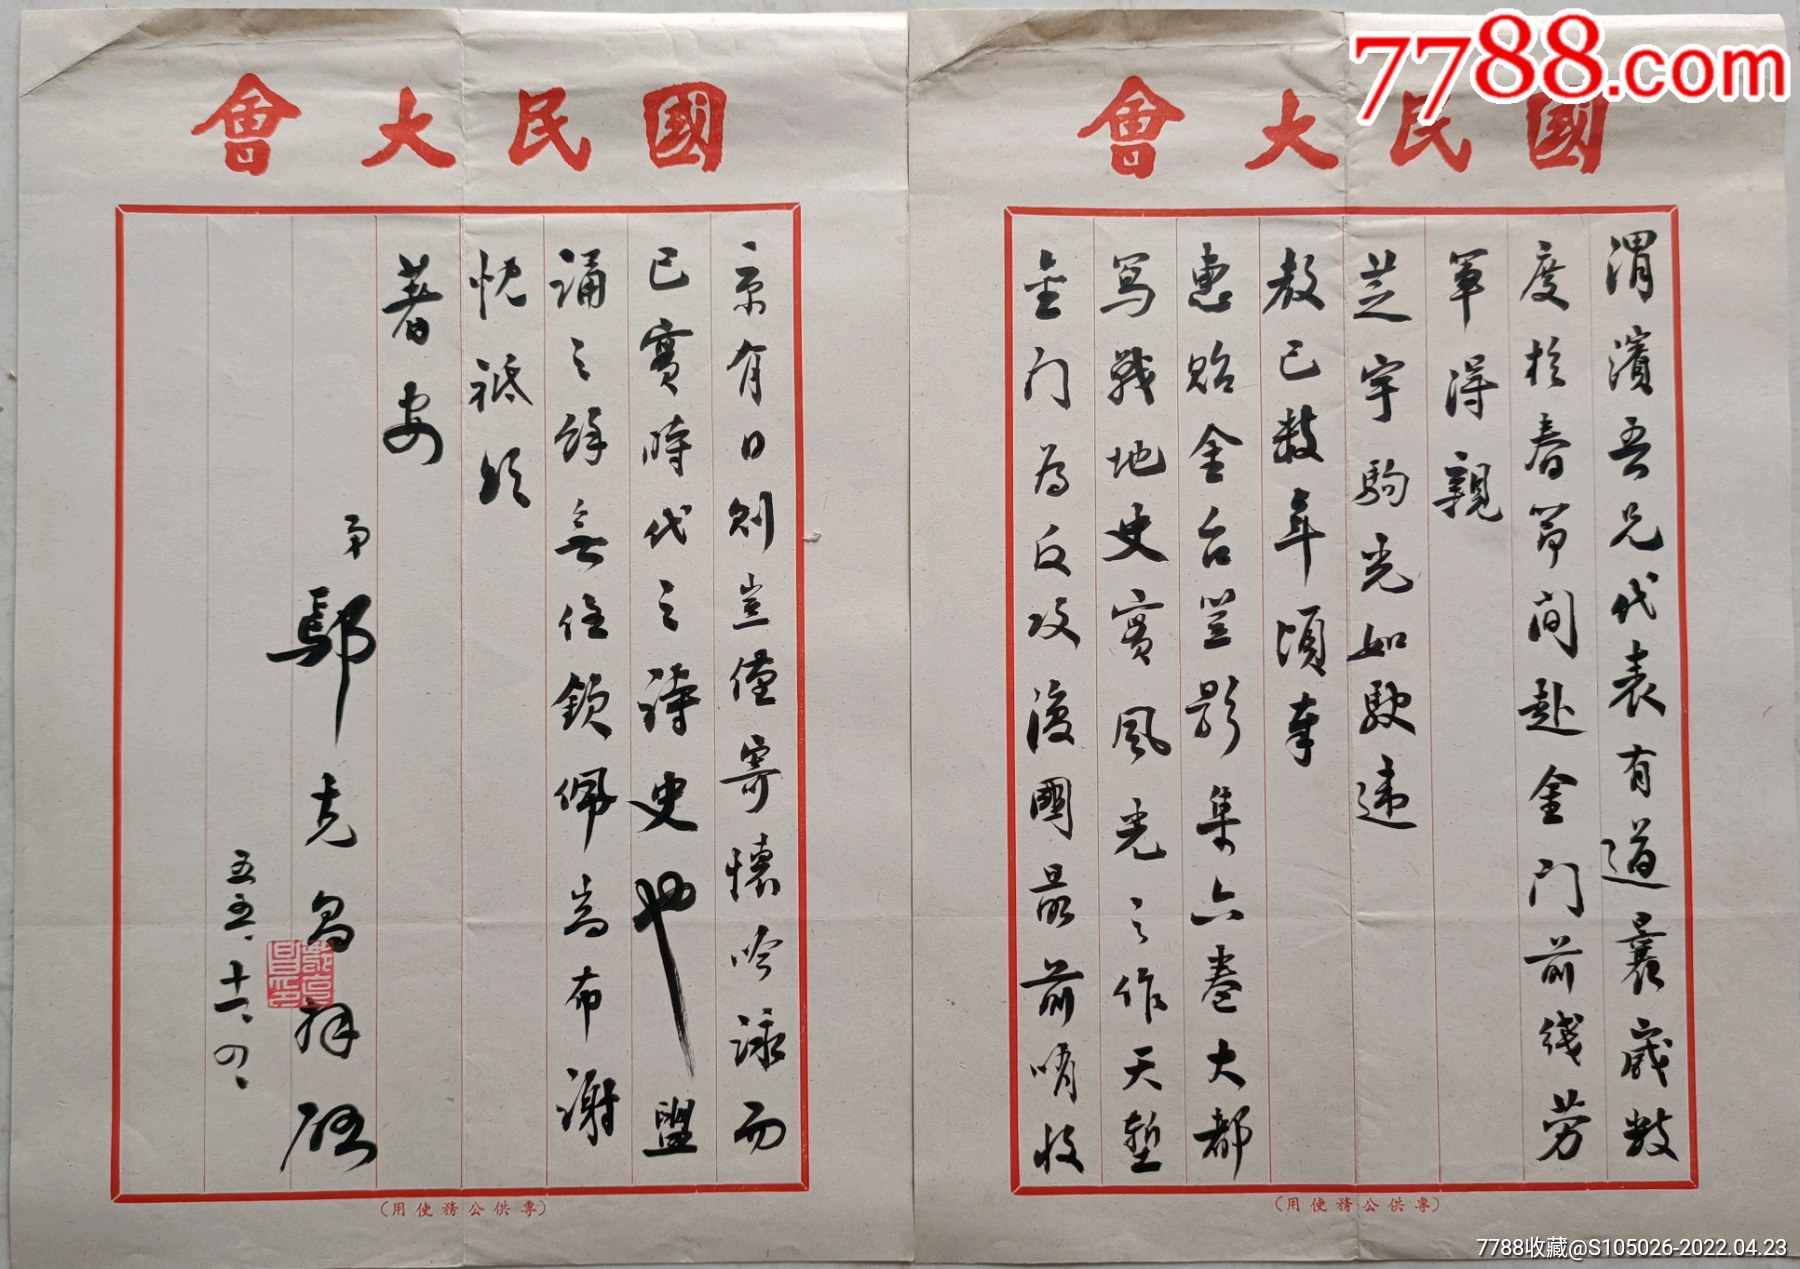 7788.com
國民大會
渭濱吾兄代表有道曩歲數
度於春節间赴金门前线劳
軍得親
芝宇駒光如駛違
教已数年頃奉
惠貽金台豋影集六卷大都
写战地史實風光之作天塹
金门为反攻復國最前哨收
(專供公務使用)
國民大會
京有日則豈僅寄懷吟詠而
已實時代之詩史也盥
誦之餘無任欽佩耑布謝
忱祗頌
著安
弟鄔克昌拜啓
五五、十一、四、
(專供公務使用)
7788收藏@S105026-2022.04.23